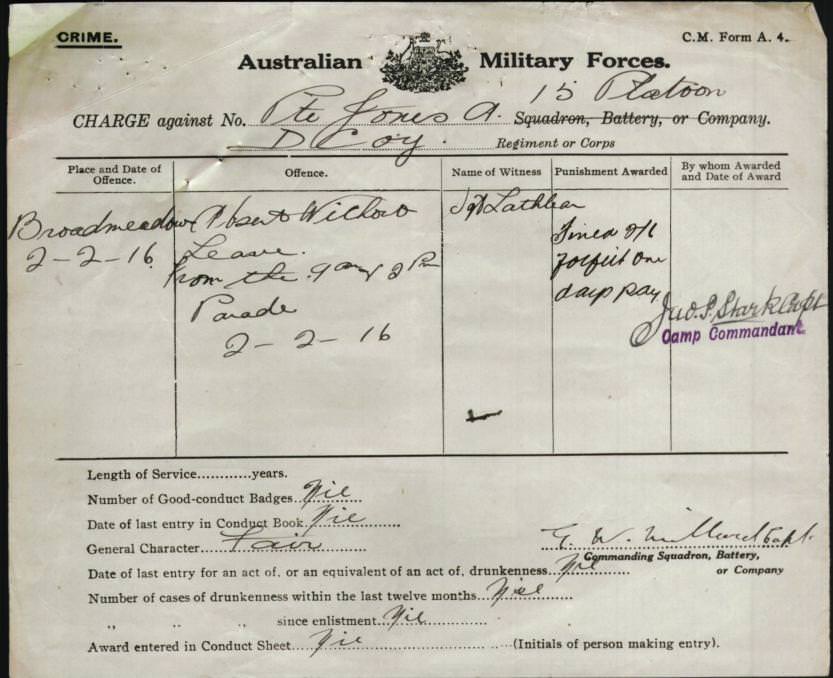 CRIME.
C.M. Form A. 4.
Australian Military Forces.
15 Platoon
CHARGE against No. Pte Jones A. Squadron, Battery, or Company.
D Coy. Regiment or Corps
Place and Date of Offence.
Offence.
Name of Witness
Punishment Awarded
By whom Awarded and Date of Award
Broadmeadows
2-2-16
Absent Without
Leave.
from the 9 am & 2 Pm
Parade
2-2-16
Sgt
Fined 2/6
forfeit one
days pay
Jno. S. Stark Capt
Camp Commandant
Length of Service............years.
Number of Good-conduct Badges Nil
Date of last entry in Conduct Book Nil
General Character Fair
G. W. Millard Capt.
Commanding Squadron, Battery,
or Company
Date of last entry for an act of, or an equivalent of an act of, drunkenness Nil
Number of cases of drunkenness within the last twelve months Nil
" " " since enlistment Nil
Award entered in Conduct Sheet Nil (Initials of person making entry).